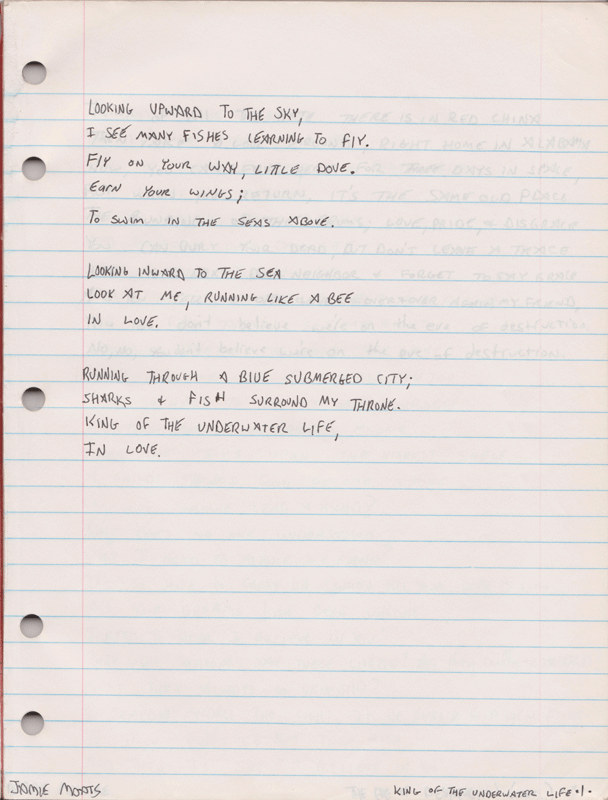 LOOKING UPWARD TO THE SKY,
I SEE MANY FISHES LEARNING TO FlY.
FlY ON YOUR WAY, LITTLE DOVE.
EARN YOUR WINGS;
TO SWIM IN THE SEAS ABOVE.
LOOKING INWARD TO THE SEA
LOOK AT ME, RUNNING LIKE A BEE
IN LOVE.
RUNNING THROUGH A BlUE SUBMERGED CITY;
SHARKS & FISH SURROUND MY THRONE.
KING OF THE UNDERWATER LIFE,
IN LOVE.
JAMIE
KING OF THE UNDERWATER LIFE •1•